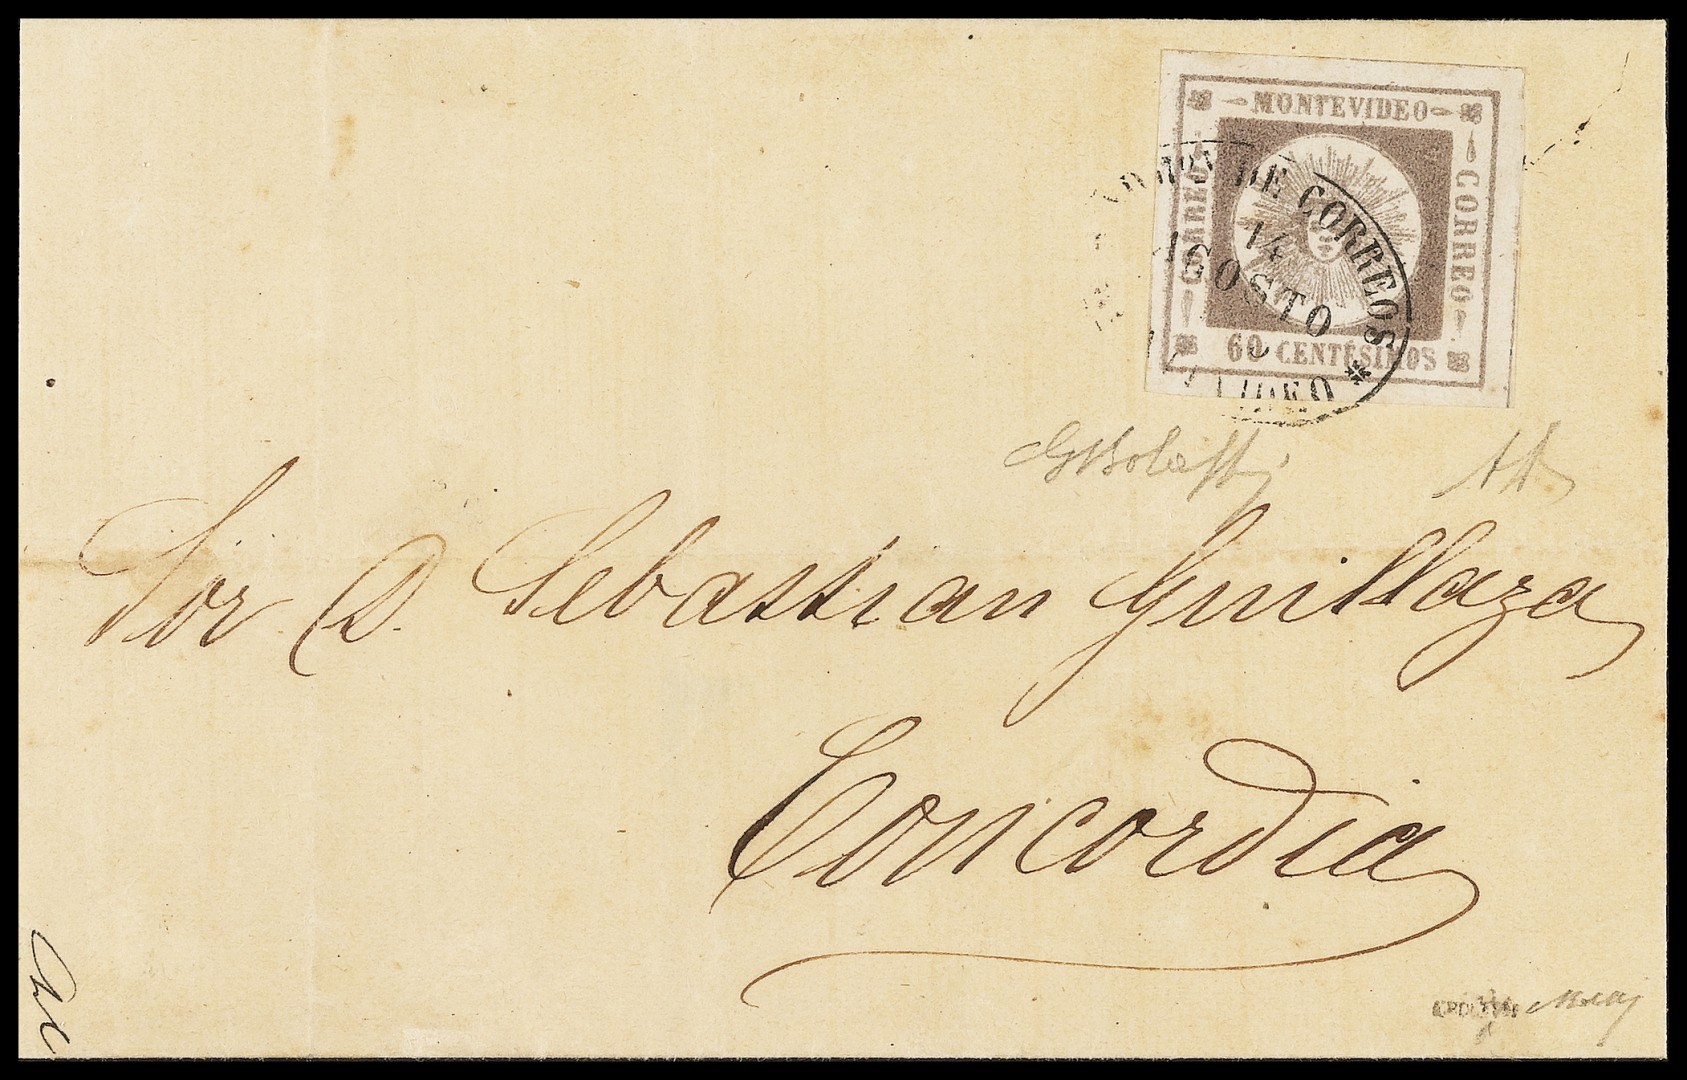 MONTEVIDEO
CORREO
CORREO
60 CENTÉSIMOS
DE CORREOS
14
AGOSTO
GBolaffi
Sor. D. Sebastian Guillaza
Concordia